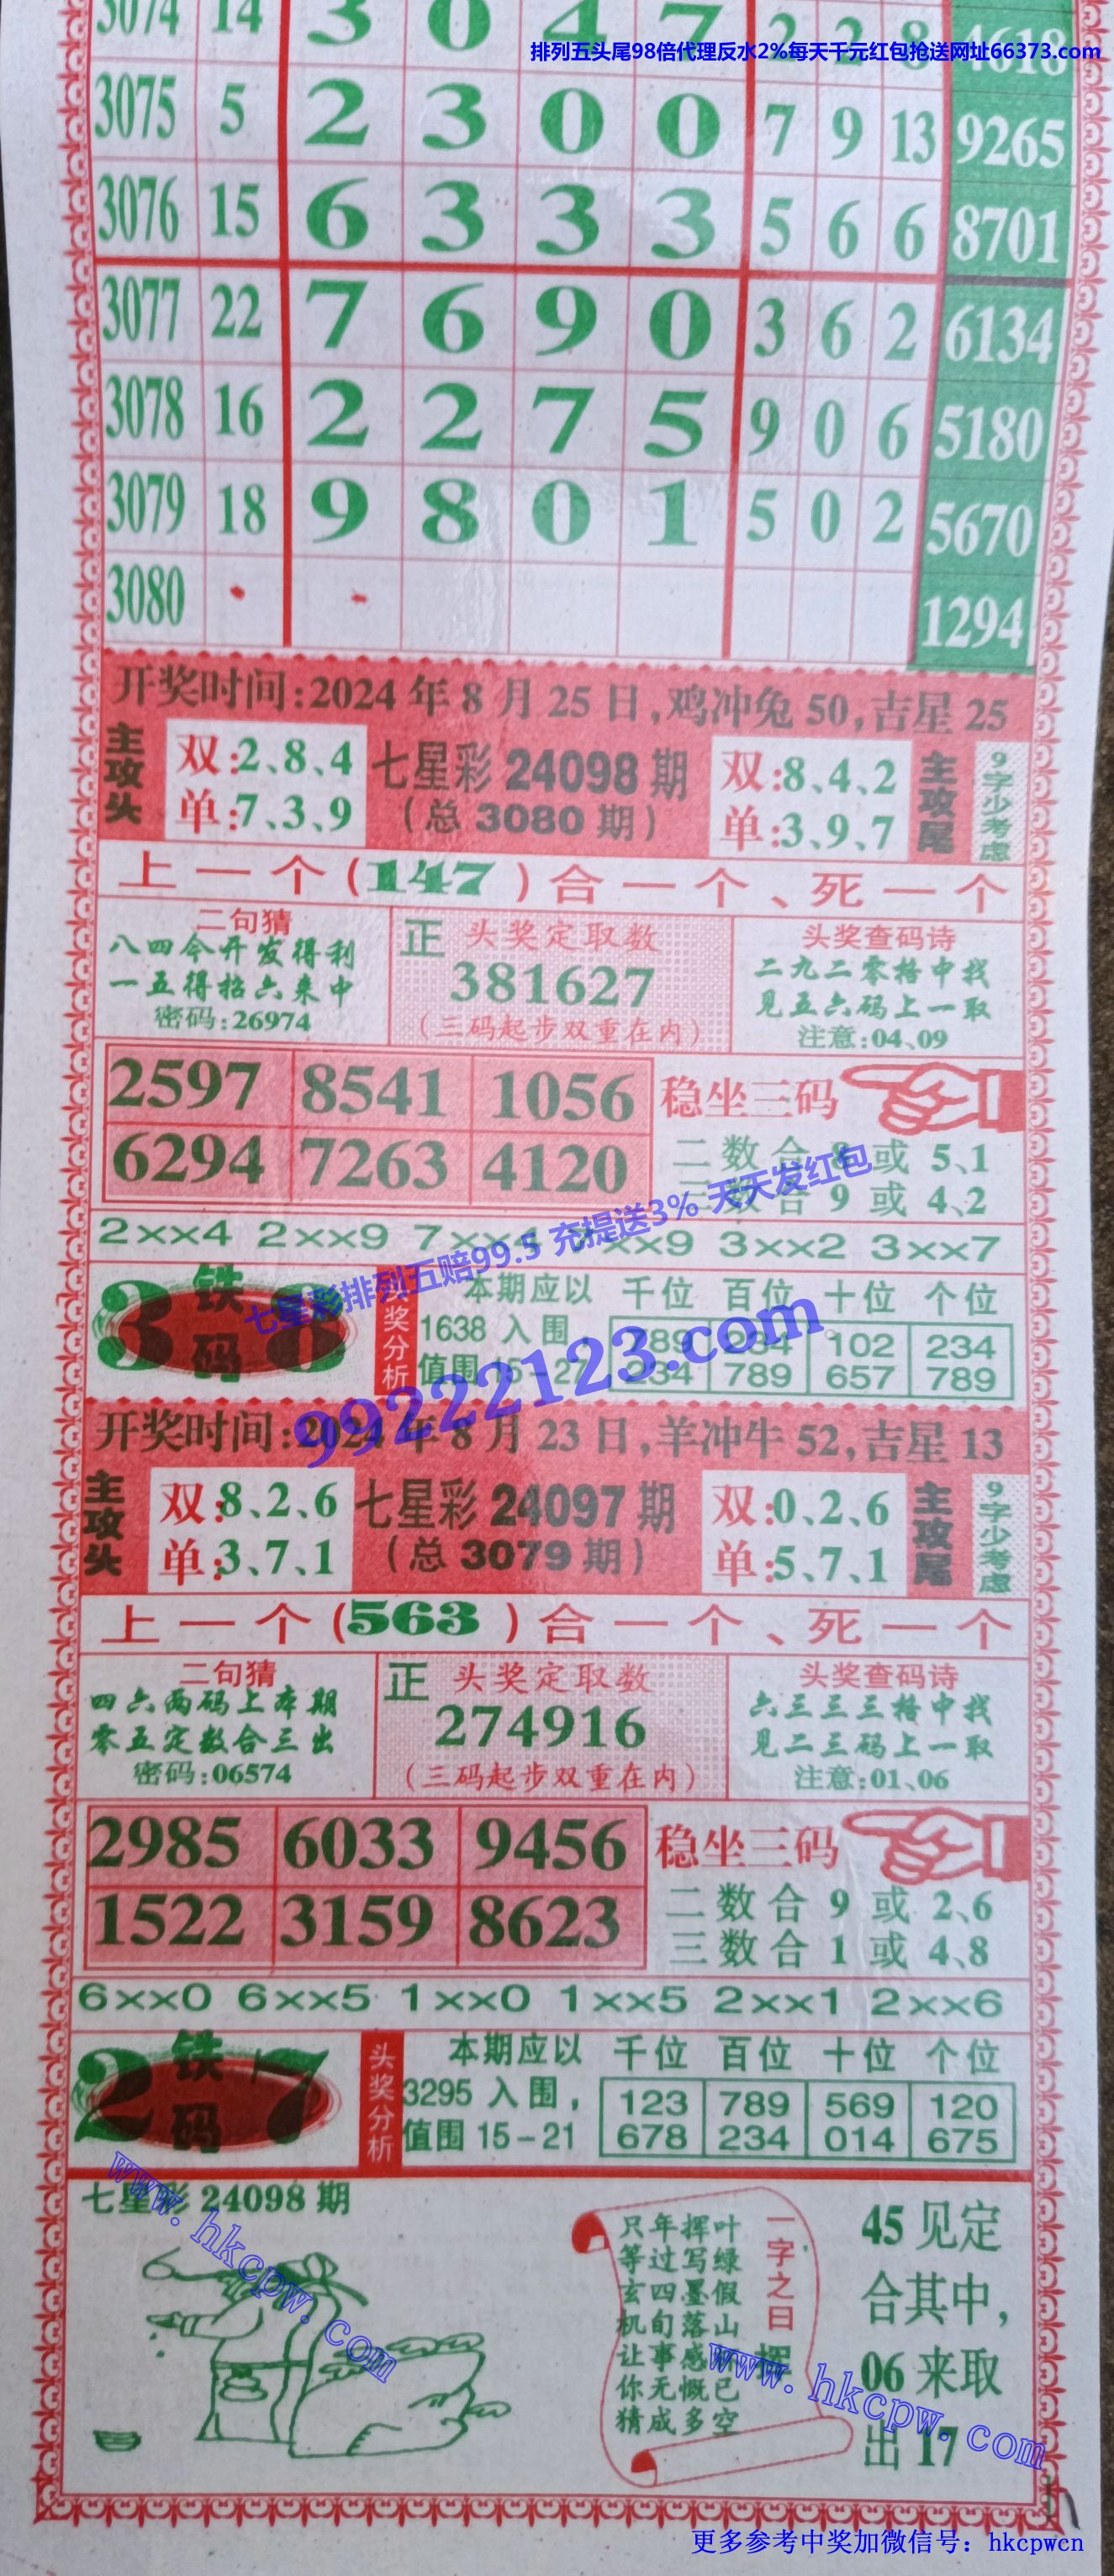 3074 14 3 0 4 7 2 2 8 4618
排列五头尾98倍代理反水2%每天千元红包抢送网址66373.com
3075 5 2 3 0 0 7 9 13 9265
3076 15 6 3 3 3 5 6 6 8701
3077 22 7 6 9 0 3 6 2 6134
3078 16 2 2 7 5 9 0 6 5180
3079 18 9 8 0 1 5 0 2 5670
3080 1294
开奖时间:2024 年 8 月 25 日,鸡冲兔 50,吉星 25
主攻头
双:2、8、4
单:7、3、9
七星彩 24098 期
(总 3080 期)
双:8、4、2
单:3、9、7
主攻尾
9字少考虑
上一个(147)合一个、死一个
二句猜
八四今开发得利
一五得招六来中
密码:26974
正 头奖定取数
381627
(三码起步双重在内)
头奖查码诗
二九二零格中找
见五六码上一取
注意:04、09
2597 8541 1056
6294 7263 4120
稳坐三码
二数合 8 或 5、1
三数合 9 或 4、2
2××4 2××9 7××4 7××9 3××2 3××7
七星彩排列五赔99.5 充提送3% 天天发红包
3 铁码 8
头奖分析
本期应以 千位 百位 十位 个位
1638 入围, 789 234 102 234
值围 15-27 234 789 657 789
99222123.com
开奖时间:2024 年 8 月 23 日,羊冲牛 52,吉星 13
主攻头
双:8、2、6
单:3、7、1
七星彩 24097 期
(总 3079 期)
双:0、2、6
单:5、7、1
主攻尾
9字少考虑
上一个(563)合一个、死一个
二句猜
四六两码上本期
零五定数合三出
密码:06574
正 头奖定取数
274916
(三码起步双重在内)
头奖查码诗
六三三三格中找
见二三码上一取
注意:01、06
2985 6033 9456
1522 3159 8623
稳坐三码
二数合 9 或 2、6
三数合 1 或 4、8
6××0 6××5 1××0 1××5 2××1 2××6
2 铁码 7
头奖分析
本期应以 千位 百位 十位 个位
3295 入围, 123 789 569 120
值围 15-21 678 234 014 675
七星彩 24098 期
www.hkcpw.com
一字之曰
叶绿假山
挥写墨落感慨多
年过四旬事无成
只等玄机让你猜
45 见定
合其中,
06 来取
出 17
www.hkcpw.com
更多参考中奖加微信号：hkcpwcn